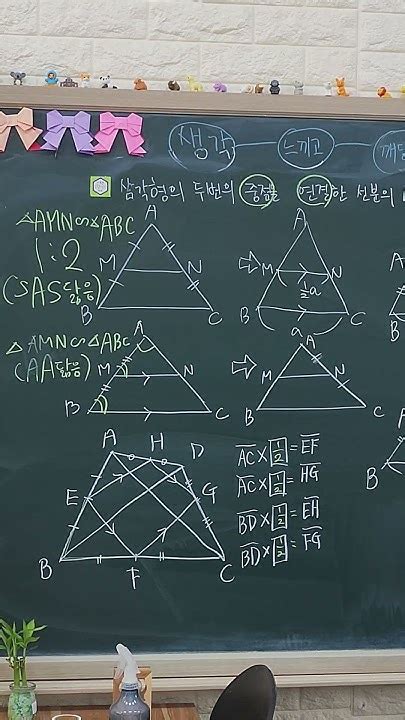 생각 느끼고 깨닫
삼각형의 두변의 중점을 연결한 선분의
△AMN∽△ABC
1:2
(SAS닮음)
A
M N
B C
A
M N
½a
B a C
A
B
△AMN∽△ABC
(AA닮음)
A
M N
B C
A
M N
B C
B
A H D
E G
B F C
AC×½=EF
AC×½=HG
BD×½=EH
BD×½=FG